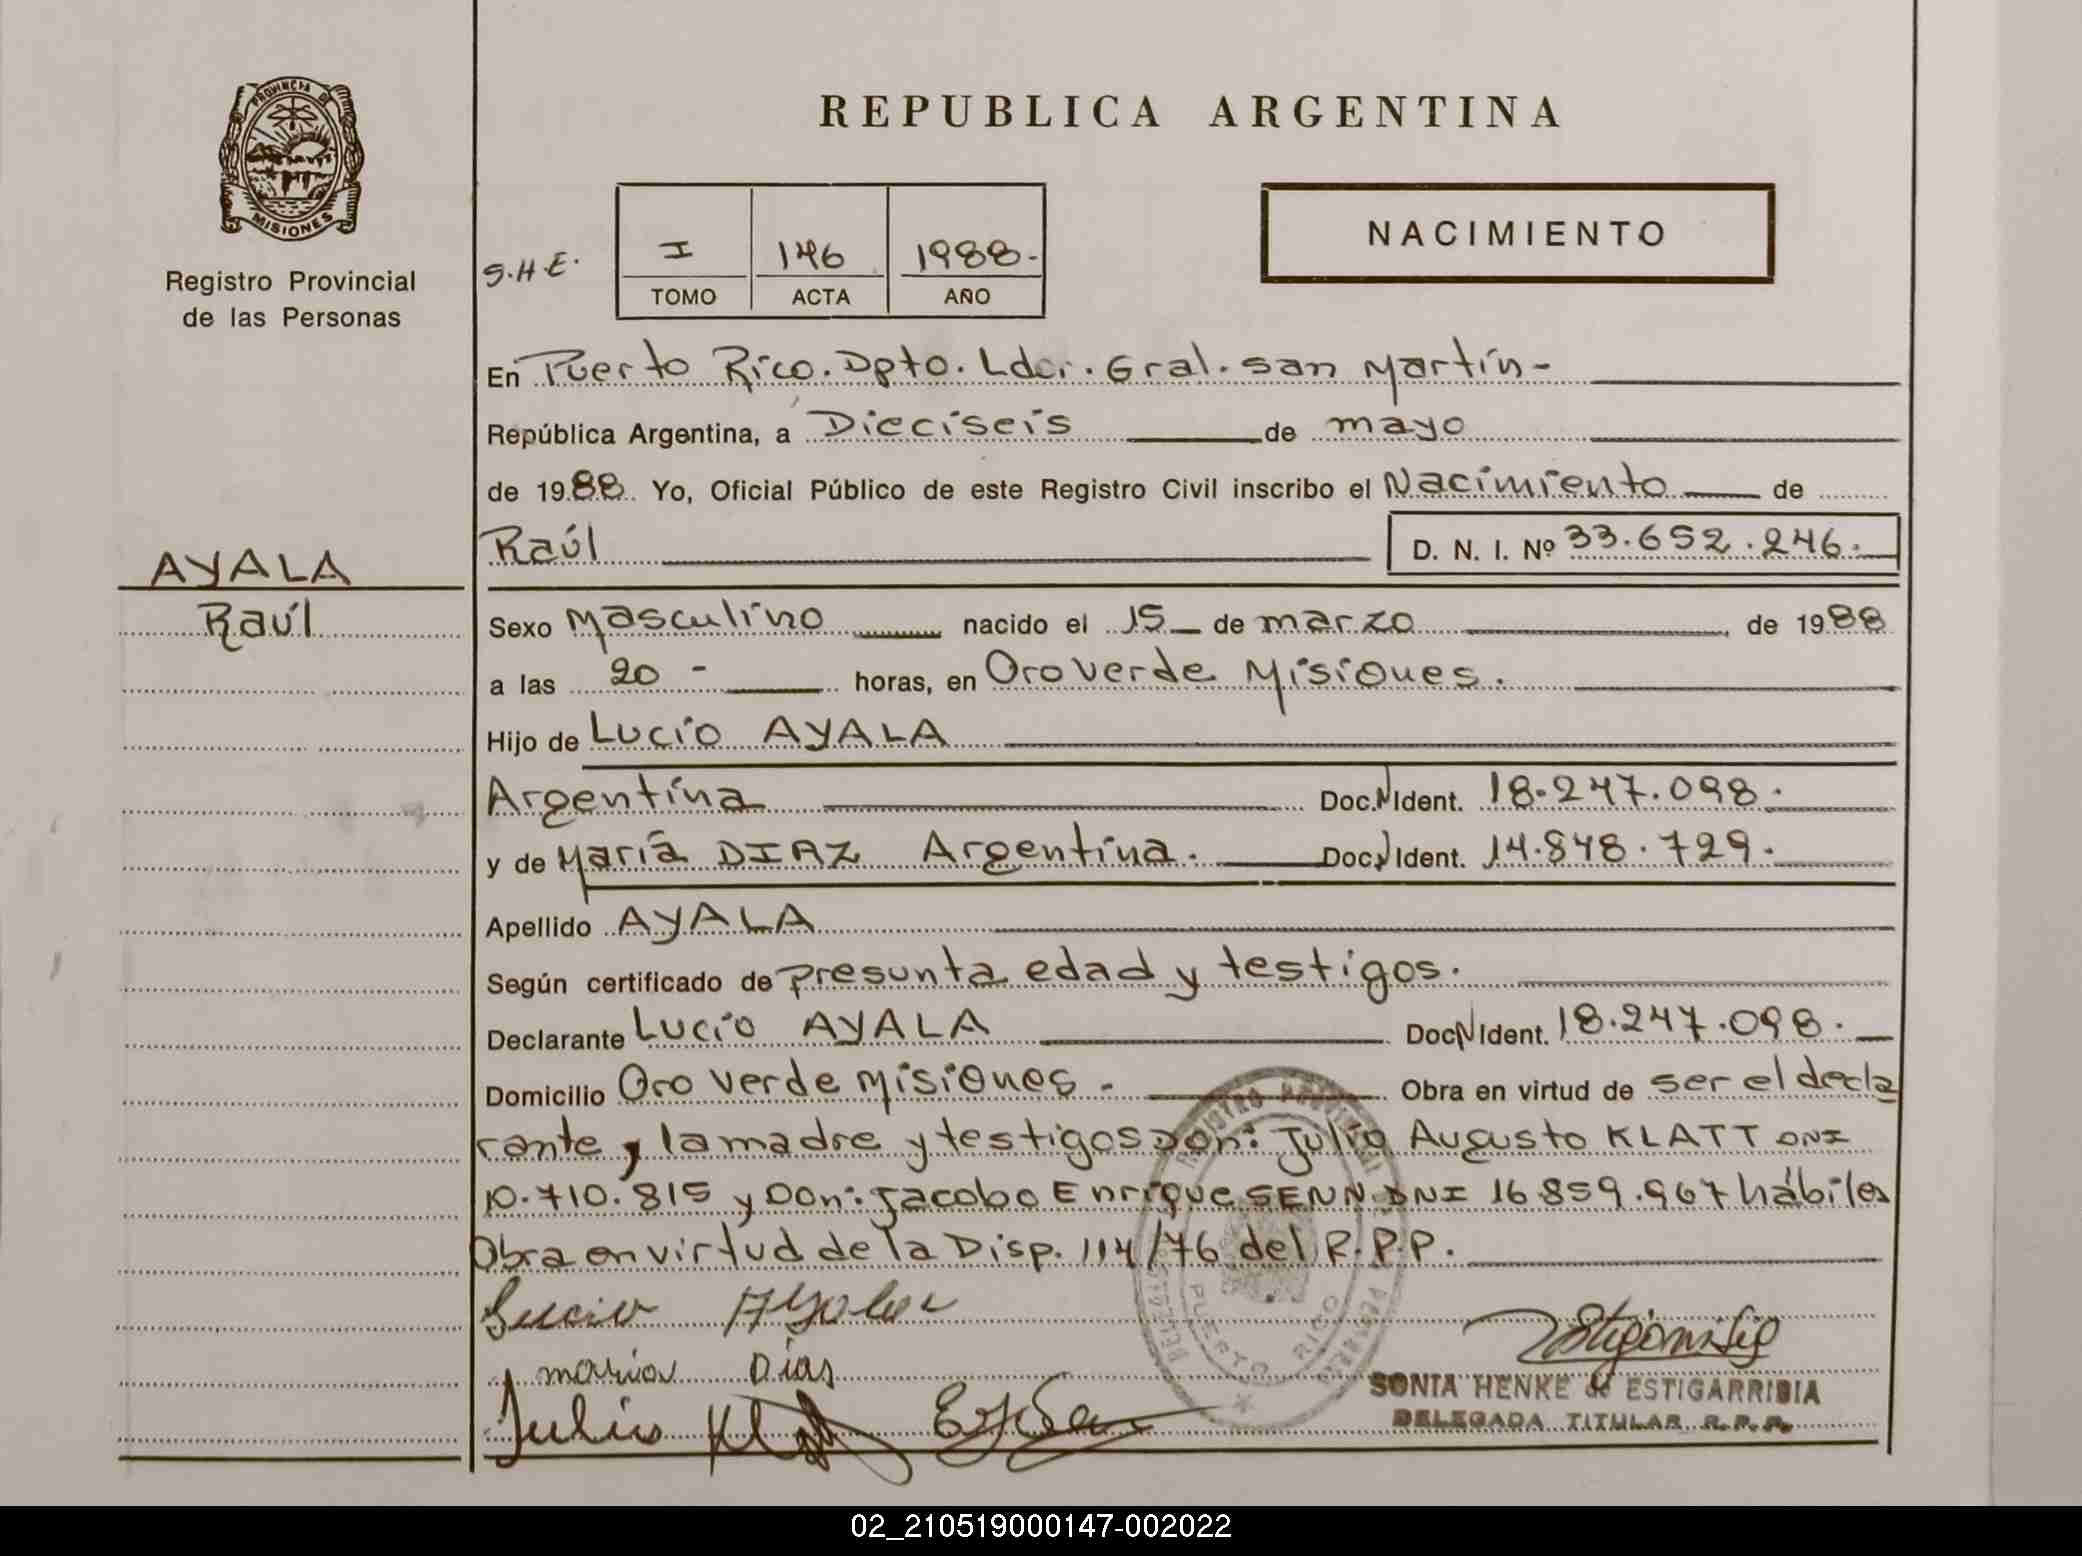 PROVINCIA DE
MISIONES
Registro Provincial
de las Personas
REPUBLICA ARGENTINA
NACIMIENTO
S.H.E.
I 146 1988.-
TOMO ACTA AÑO
En Puerto Rico. Dpto. Ldor. Gral. San Martín-
República Argentina, a Dieciseis de mayo
de 1988. Yo, Oficial Público de este Registro Civil inscribo el Nacimiento de
Raúl D. N. I. Nº 33.652.246.
AYALA
Raúl
Sexo Masculino nacido el 15 de marzo, de 1988
a las 20 - horas, en Oro Verde Misiones.
Hijo de Lucío AYALA
Argentina Doc. N Ident. 18.247.098.
y de María DIAZ Argentina. Doc. N Ident. 14.848.729.
Apellido AYALA
Según certificado de presunta edad y testigos.
Declarante Lucío AYALA Doc. N Ident. 18.247.098.
Domicilio Oro Verde Misiones - Obra en virtud de ser el decla
rante, la madre y testigos Don: Julio Augusto KLATT DNI
10.710.815 y Don: Jacobo Enrique SENN DNI 16.859.967 hábiles
Obra en virtud de la Disp. 114/76 del R.P.P.
Lucio Ayala
maria Días
Julio
REGISTRO PROVINCIAL
PUERTO RICO
SONIA HENKE de ESTIGARRIBIA
DELEGADA TITULAR R.P.P.
02_210519000147-002022